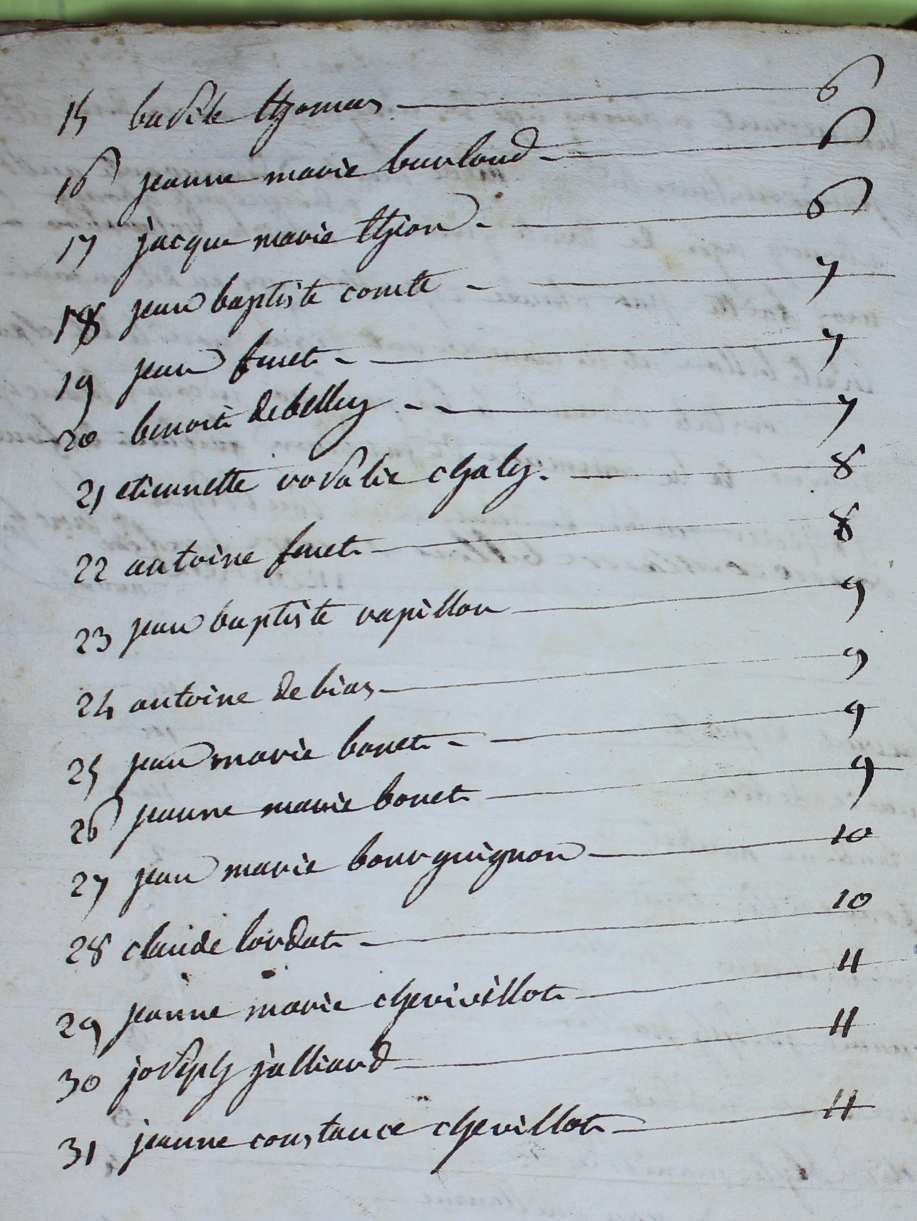 15 basile thomas 6
16 jeanne marie burloud 6
17 jacque marie thion 6
18 jean baptiste comte 7
19 jean furet 7
20 benoit debelley 7
21 etiennette rosalie chaly 8
22 antoine furet 8
23 jean baptiste rapillon 9
24 antoine debias 9
25 jean marie bonet 9
26 jeanne marie bonet 9
27 jean marie bourguignon 10
28 claude lordat 10
29 jeanne marie cherivillot 11
30 joseph jalliard 11
31 jeanne constance chevillot 11